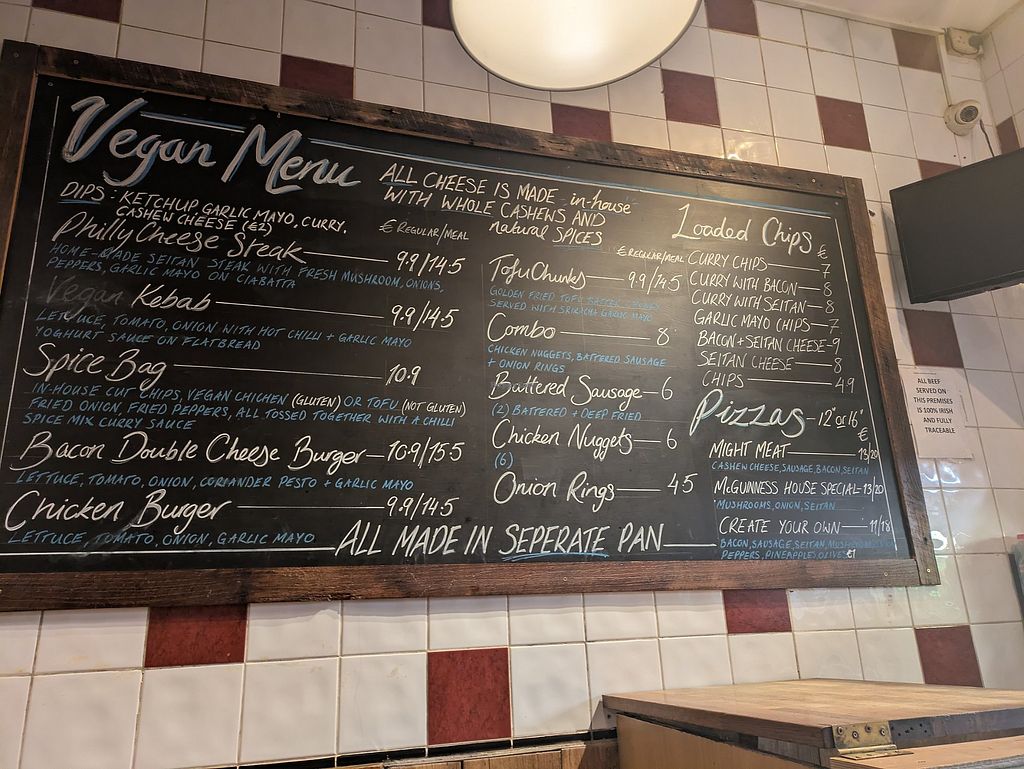 Vegan Menu
ALL CHEESE IS MADE in-house
WITH WHOLE CASHEWS AND
natural SPICES
DIPS - KETCHUP, GARLIC MAYO, CURRY,
CASHEW CHEESE (€2)
€ REGULAR/MEAL
Philly Cheese Steak 9.9/14.5
HOME-MADE SEITAN STEAK WITH FRESH MUSHROOM, ONIONS,
PEPPERS, GARLIC MAYO ON CIABATTA
Vegan Kebab 9.9/14.5
LETTUCE, TOMATO, ONION WITH HOT CHILLI + GARLIC MAYO
YOGHURT SAUCE ON FLATBREAD
Spice Bag 10.9
IN-HOUSE CUT CHIPS, VEGAN CHICKEN (GLUTEN) OR TOFU (NOT GLUTEN)
FRIED ONION, FRIED PEPPERS, ALL TOSSED TOGETHER WITH A CHILLI
SPICE MIX CURRY SAUCE
Bacon Double Cheese Burger 10.9/15.5
LETTUCE, TOMATO, ONION, CORIANDER PESTO + GARLIC MAYO
Chicken Burger 9.9/14.5
LETTUCE, TOMATO, ONION, GARLIC MAYO
€ REGULAR/MEAL
Tofu Chunks 9.9/14.5
GOLDEN FRIED TOFU BATTER
SERVED WITH SRIRACHA GARLIC MAYO
Combo 8
CHICKEN NUGGETS, BATTERED SAUSAGE
+ ONION RINGS
Battered Sausage 6
(2) BATTERED + DEEP FRIED
Chicken Nuggets 6
(6)
Onion Rings 4.5
ALL MADE IN SEPERATE PAN
Loaded Chips €
CURRY CHIPS 7
CURRY WITH BACON 8
CURRY WITH SEITAN 8
GARLIC MAYO CHIPS 7
BACON + SEITAN CHEESE 9
SEITAN CHEESE 8
CHIPS 4.9
Pizzas 12" or 16"
€
MIGHT MEAT 13/20
CASHEW CHEESE, SAUSAGE, BACON, SEITAN
McGUNNESS HOUSE SPECIAL 13/20
MUSHROOMS, ONION, SEITAN
CREATE YOUR OWN 11/18
BACON, SAUSAGE, SEITAN, MUSHROOMS
PEPPERS, PINEAPPLE, OLIVES €1
ALL BEEF
SERVED ON
THIS PREMISES
IS 100% IRISH
AND FULLY
TRACEABLE